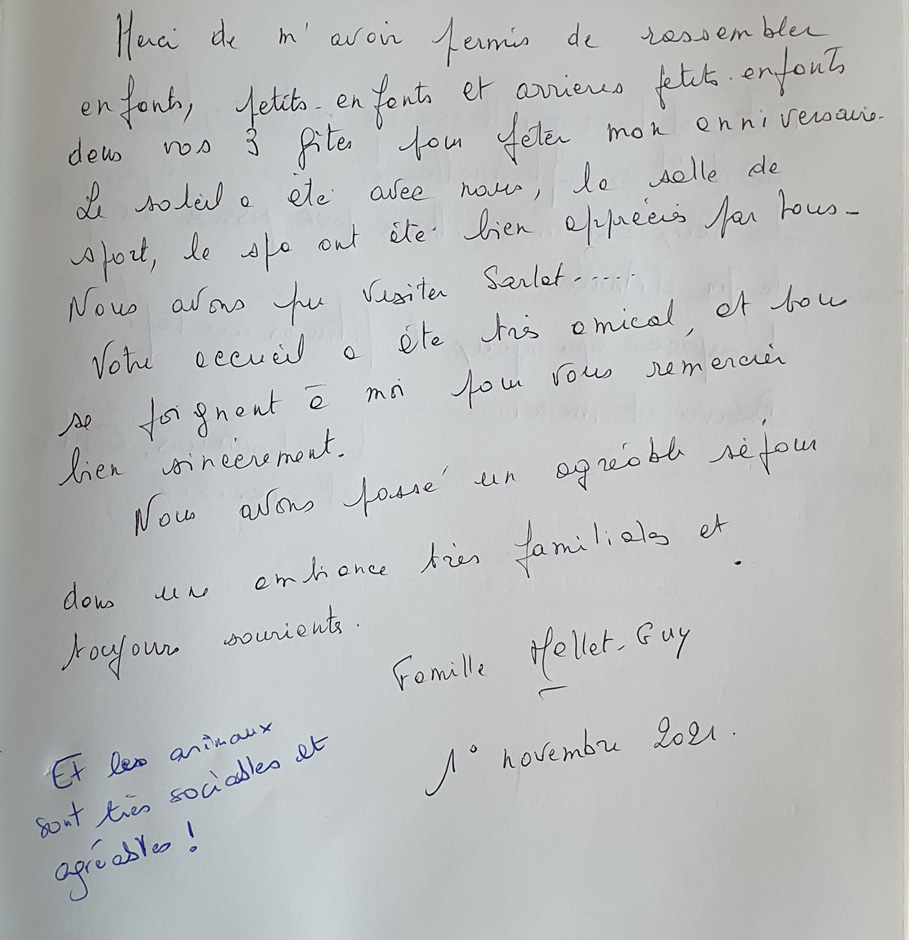 Merci de m'avoir permis de rassembler
enfants, petits-enfants et arrieres petits-enfants
dans vos 3 gîtes pour fêter mon anniversaire.
Le soleil a été avec nous, la salle de
sport, le spa ont été bien appréciés par tous-
Nous avons pu visiter Sarlat.....
Votre accueil a été très amical, et tous
se joignent à moi pour vous remercier
bien sincèrement.
Nous avons passé un agréable séjour
dans une ambiance très familiale et
toujours souriants.
Famille Mellet-Guy
1° novembre 2021.
Et les animaux
sont très sociables et
agréables !